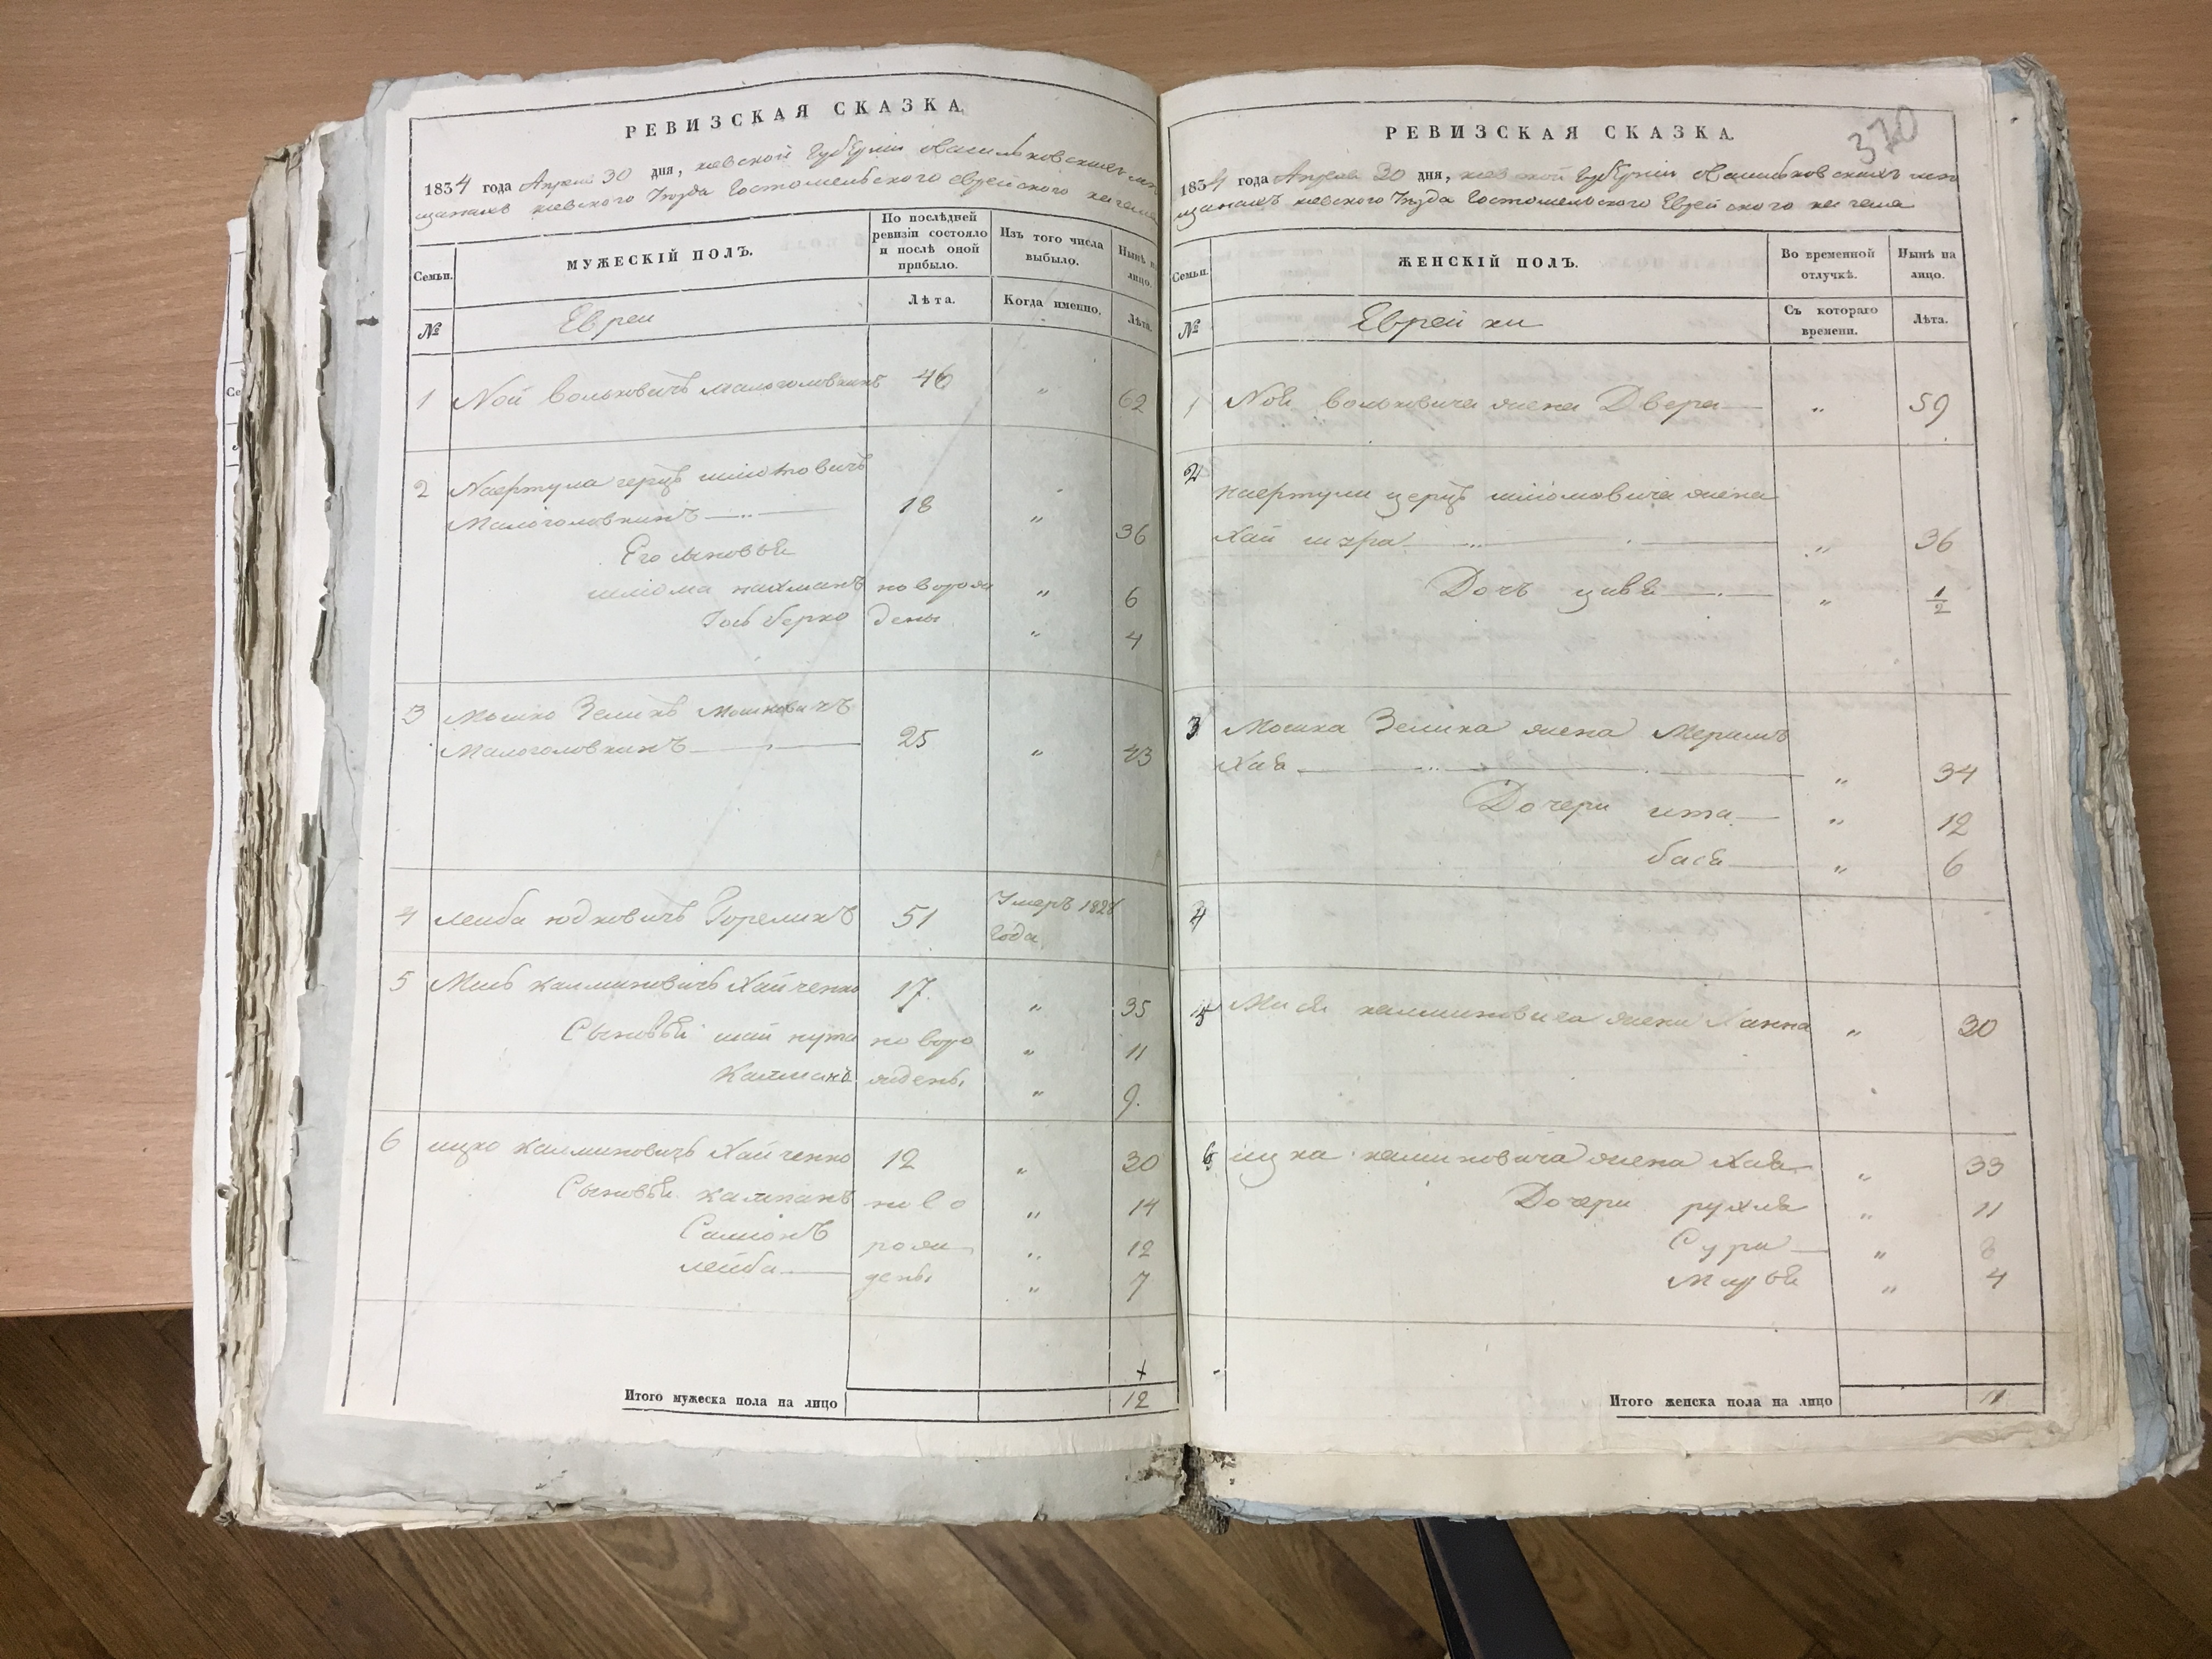 РЕВИЗСКАЯ СКАЗКА
1834 года Апреля 30 дня, киевской Губернии о Васильковских ме
щанахъ киевского Уезда Гостомельского еврейского кагала
Семьи.
МУЖЕСКІЙ ПОЛЪ.
По послѣдней ревизіи состояло и послѣ оной прибыло.
Изъ того числа выбыло.
Нынѣ на лицо.
№
Евреи
Лѣта.
Когда именно.
Лѣта.
1 Ной Вольковичъ Малоголовкинъ 46 " 62
2 герцъ шліомовичъ
Малоголовкинъ 18 " 36
Его сыновьѣ
шліома нахманъ новорож " 6
Іось берко дены " 4
3 Мошко Зеликъ Мошковичъ
Малоголовкинъ 25 " 43
4 Лейба юдковичъ Гореликъ 51 Умеръ 1828
года
5 Мись калмановичъ Хайченко 17. " 35
Сыновьѣ ново " 11
Калманъ ждены, " 9.
6 ицко калмановичъ Хайченко 12 " 30
Сыновьѣ калманъ но во " 14
Самсонъ рож " 12
лейба дены, " 7
Итого мужеска пола на лицо 12
370
РЕВИЗСКАЯ СКАЗКА.
1834 года Апреля 30 дня, киевской Губернии о Васильковскихъ ме
щанахъ киевского Уезда Гостомельского Еврейского кагала
Семьи.
ЖЕНСКІЙ ПОЛЪ.
Во временной отлучкѣ.
Нынѣ на лицо.
№
Еврейки
Съ котораго времени.
Лѣта.
1 Ноя вольковича жена Двера " 59
2 герцъ шліомовича жена
Хай " 36
Дочь цивѣ " 1/2
3 Мошка Зелика жена Мериамъ
Хаѣ " 34
Дочери ита " 12
басѣ " 6
4
5 Мисѣ калмановича жена Ханна " 30
6 ицка калмановича жена Хаѣ " 33
Дочери рухлѣ " 11
Сура " 8
" 4
Итого женска пола на лицо 11